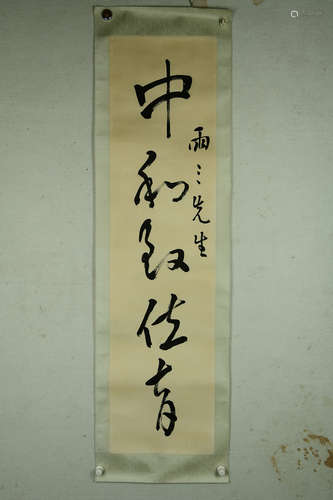 雨三先生
中和致位育